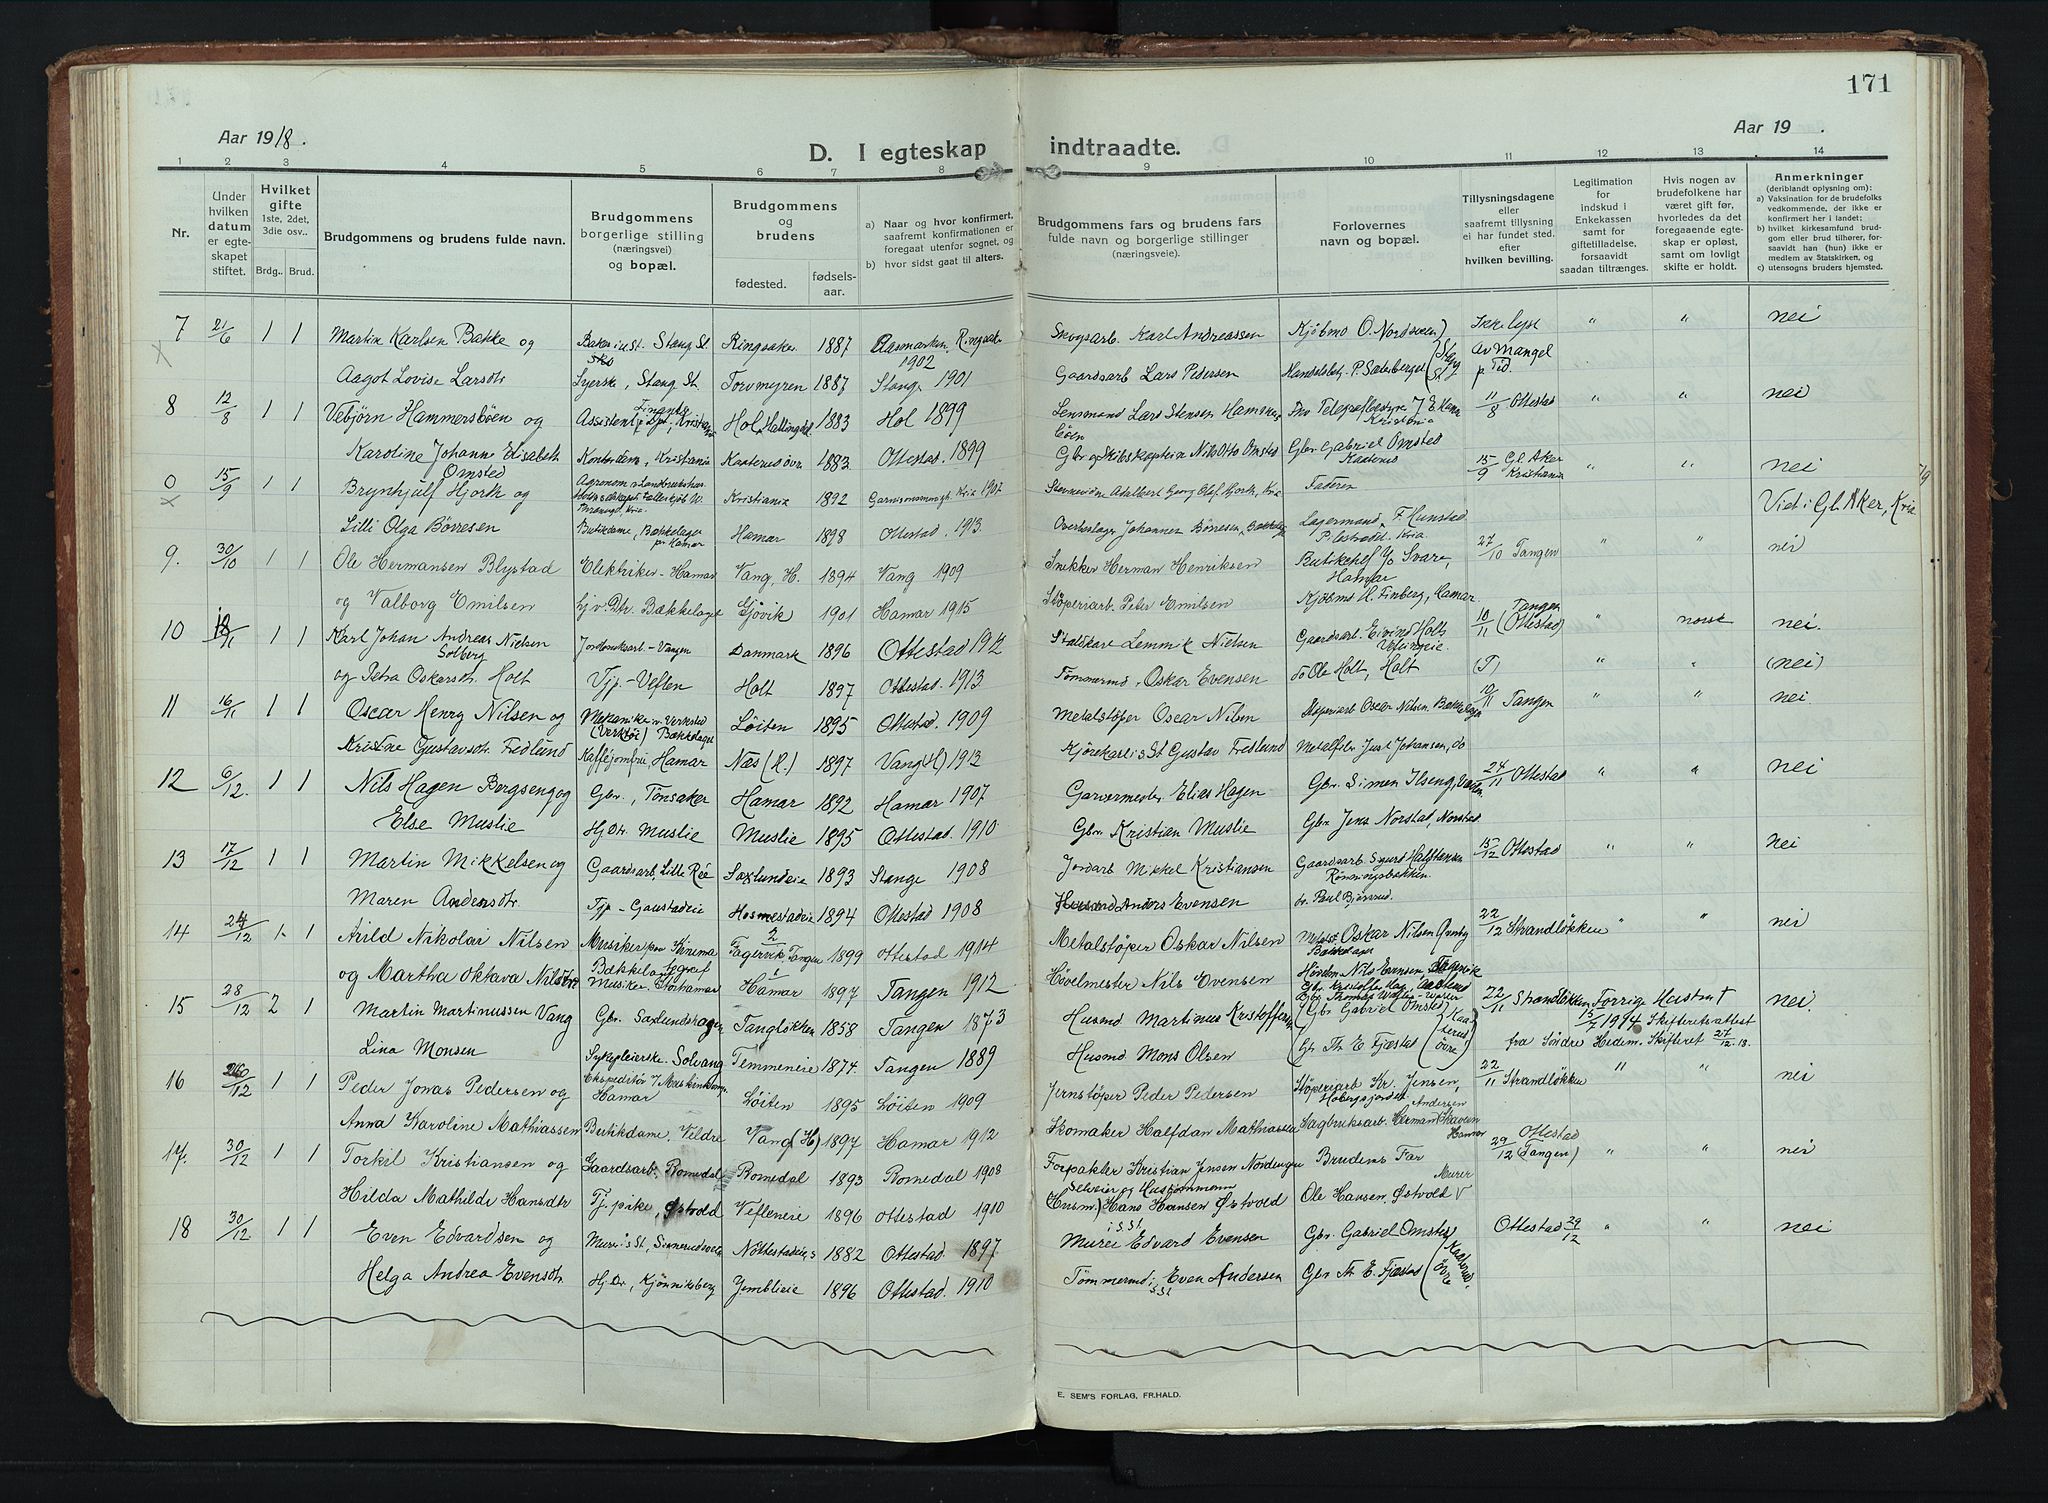 171
Aar 1918.
Aar 19 .
D. I egteskap indtraadte.
1 2 3 4 5 6 7 8 9 10 11 12 13 14
Nr.
Under hvilken datum er egteskapet stiftet.
Hvilket gifte 1ste, 2det, 3die osv..
Brdg.. Brud.
Brudgommens og brudens fulde navn.
Brudgommens borgerlige stilling (næringsvei) og bopæl.
Brudgommens og brudens
fødested. fødsels-aar.
a) Naar og hvor konfirmert, saafremt konfirmationen er foregaat utenfor sognet, og
b) hvor sidst gaat til alters.
Brudgommens fars og brudens fars fulde navn og borgerlige stillinger (næringsveie).
Forlovernes navn og bopæl.
Tillysningsdagene eller saafremt tillysning ei har fundet sted, efter hvilken bevilling.
Legitimation for indskud i Enkekassen samt for giftetilladelse, forsaavidt saadan tiltrænges.
Hvis nogen av brudefolkene har været gift før, hvorledes da det foregaaende egteskap er opløst, samt om lovligt skifte er holdt.
Anmerkninger (deriblandt oplysning om):
a) Vaksination for de brudefolks vedkommende, der ikke er konfirmert her i landet;
b) hvilket kirkesamfund brudgom eller brud tilhører, forsaavidt han (hun) ikke er medlem av Statskirken, og
c) utensogns bruders hjemsted.
7 21/6 1 1 Martin Karlsen Bakke og Baker i St. Stang St. Ringsaker 1887 Aasmarken, Ringsaker 1902 Skogsarb. Karl Andreassen Kjøbmd O. Nordsveen Ikke lyst " " nei
Aagot Lovise Larsdtr Syerske, Stang St. Torvmyren 1887 Stange 1901 Gaardsarb Lars Pedersen P. Sæterberget Av Mangel p Tid.
8 12/8 1 1 Vebjørn Hammersbøen og Assistent i Finants Dpt., Kristiania Hol, Hallingdal 1883 Hol 1899 Lensmand Lars Stensen Hammersbøen Kristiania 11/8 Ottestad " " nei
Karoline Johanne Elisabeth Omsted Kristiania Kaaterud øvre 1883 Ottestad 1899 Gbr og Skibskaptein Nils Otto Omsted Gbr. Gabriel Omsted
0 15/9 1 1 Brynhjulf Hjorth og Agronom Kristiania 1892 Kria 1907 Adalbert Georg Olaf Hjorth, Kria Faderen 15/9 Gl. Aker Kristiania " " nei
Viet i Gl. Aker, Kria
Lilli Olga Børresen Butikdame, Bækkelaget pr Hamar Hamar 1898 Ottestad 1913 Johannes Børresen, Bækkelaget Lagermand F. Hunstad Kria.
9. 30/10 1 1 Ole Hermansen Blystad Elektriker - Hamar Vang, H. 1894 Vang 1909 Snekker Herman Henriksen Svare, Hamar 27/10 Tangen " " nei
og Valborg Emilsen Hj.v. Dtr. Bækkelaget Gjøvik 1901 Hamar 1915 Støperiarb. Peter Emilsen Kjøbmd H. Finberg, Hamar
10 18/11 1 1 Karl Johan Andreas Nielsen Solberg Jordbruksarb - Vangen Danmark 1896 Ottestad 1912 Nielsen Gaardsarb. Eivind Holt, 10/11 Tangen (Ottestad) " norsk nei.
og Petra Oskarsdtr Holt Tjp. - Veflen Holt 1897 Ottestad 1913 Tømmermd, Oskar Evensen do Ole Holt, Holt (T) " " (nei)
11 16/11 1 1 Oscar Henry Nilsen og Mekaniker v Verksted (Verktøi) Bækkelaget Løiten 1895 Ottestad 1909 Metalstøper Oscar Nilsen Støperiarb Oscar Nilsen, Bækkelaget 10/11 Tangen " " nei
Kristine Gustavsdtr Fredlund Kafféjomfru, Hamar Næs (H.) 1897 Vang (H) 1913 Kjørekarl i St Gustav Fredlund Just Johansen, do
12 6/12. 1 1 Nils Hagen Bergseng og Gbr., Tønsaker Hamar 1892 Hamar 1907 Garvermester Elias Hagen Gbr. Simen Ilseng, 24/11 Ottestad " " nei
Else Muslie Hj Dtr. Muslie Muslie 1895 Ottestad. 1910 Gbr Kristian Muslie Gbr Jens Norstad, Norstad
13 17/12 1 1 Martin Mikkelsen og Gaardsarb, Lille Røe Saxlundeie 1893 Stange 1908 Jordarb Mikkel Kristiansen Gaardsarb Sigurd Rønningsbakken. 15/12 Ottestad " " nei
Maren Andersdtr. Tjp - Gaustadeie Hosmestadeie 1894 Ottestad 1908 Husmd Anders Evensen do. Paul Bjørnrud
14 24/12 1. 1 Arild Nikolai Nilsen Musiker paa Kinema Bækkelaget Fagervik, Tangen 1899 Ottestad 1914 Metalstøper Oskar Nilsen Metalst Oskar Nilsen Bækkelaget 22/12 Strandløkken " " nei
og Martha Oktava Nilsdtr Musiker. Storhamar Hamar 1897 Tangen 1912 Høvelmester Nils Evensen Nils Evensen, Fagervik
15 28/12 2 1 Martin Martinussen Vang Gbr. Saxlundshagen Tangløkken 1858 Tangen 1873 Husmd Martinus Kristoffersen (Gbr Gabriel Omsted) 22/11 Strandløkken Forrige Hustru † 15/7 1914 Skifteretsattest nei.
Lina Monsen Sykepleierske. Solvang Temmeneie 1874 Tangen 1889 Husmd Mons Olsen Gbr Th E. Fjæstad (Kaaterud øvre) fra Søndre Hedem. Skifteret 27/12.18.
16 20/12 1 1 Peder Jonas Pedersen og Hamar Løiten 1895 Løiten 1909 Jernstøper Peder Pedersen Støperiarb Kr. Jensen, 22/11 Strandløkken " " nei
Anna Karoline Mathiassen Butikdame, Veldre Vang (H) 1897 Hamar 1912 Skomaker Halfdan Mathiassen Sagbruksarb. Herman Andersen Hamar
17. 30/12 1 1 Torkil Kristiansen og Gaardsarb. Romedal Romedal 1893 Romedal 1908 Forpakter Kristian Jensen Nordengen Brudens Far 29/12 Ottestad (Tangen) " " nei
Hilda Mathilde Hansdtr Tj.pike, Østvold Vefleneie 1896 Ottestad 1910 Selveier og Husjømmermand (Husm.) Hans Hansen Østvold Murer Ole Hansen, Østvold
18 30/12. 1 1 Even Edvardsen og Murer i St., Nøttestadeie, s 1882 Ottestad 1897 Murer i S St. Edvard Evensen Gbr. Gabriel Omsted Ottestad 29/12 " " nei
Helga Andrea Evensdtr Hj. Dtr., Kjønniksberg Jemblieie 1896 Ottestad. 1910 Tømmermd i S St. Even Andersen Gbr Th. E. Fjæstad (Kaaterud øvre
E. SEM'S FORLAG, FR.HALD.